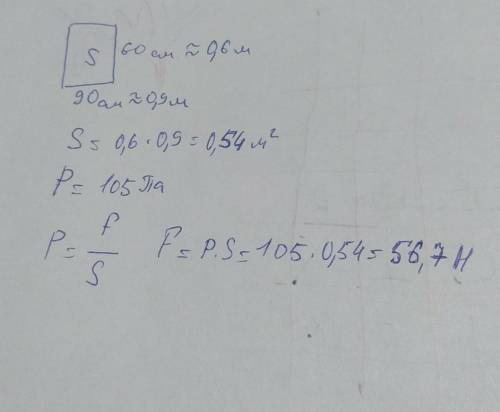 S 60 см ≈ 0,6 м
90 см ≈ 0,9 м
S = 0,6 · 0,9 = 0,54 м²
P = 105 Па
P = F/S F = P·S = 105 · 0,54 = 56,7 Н